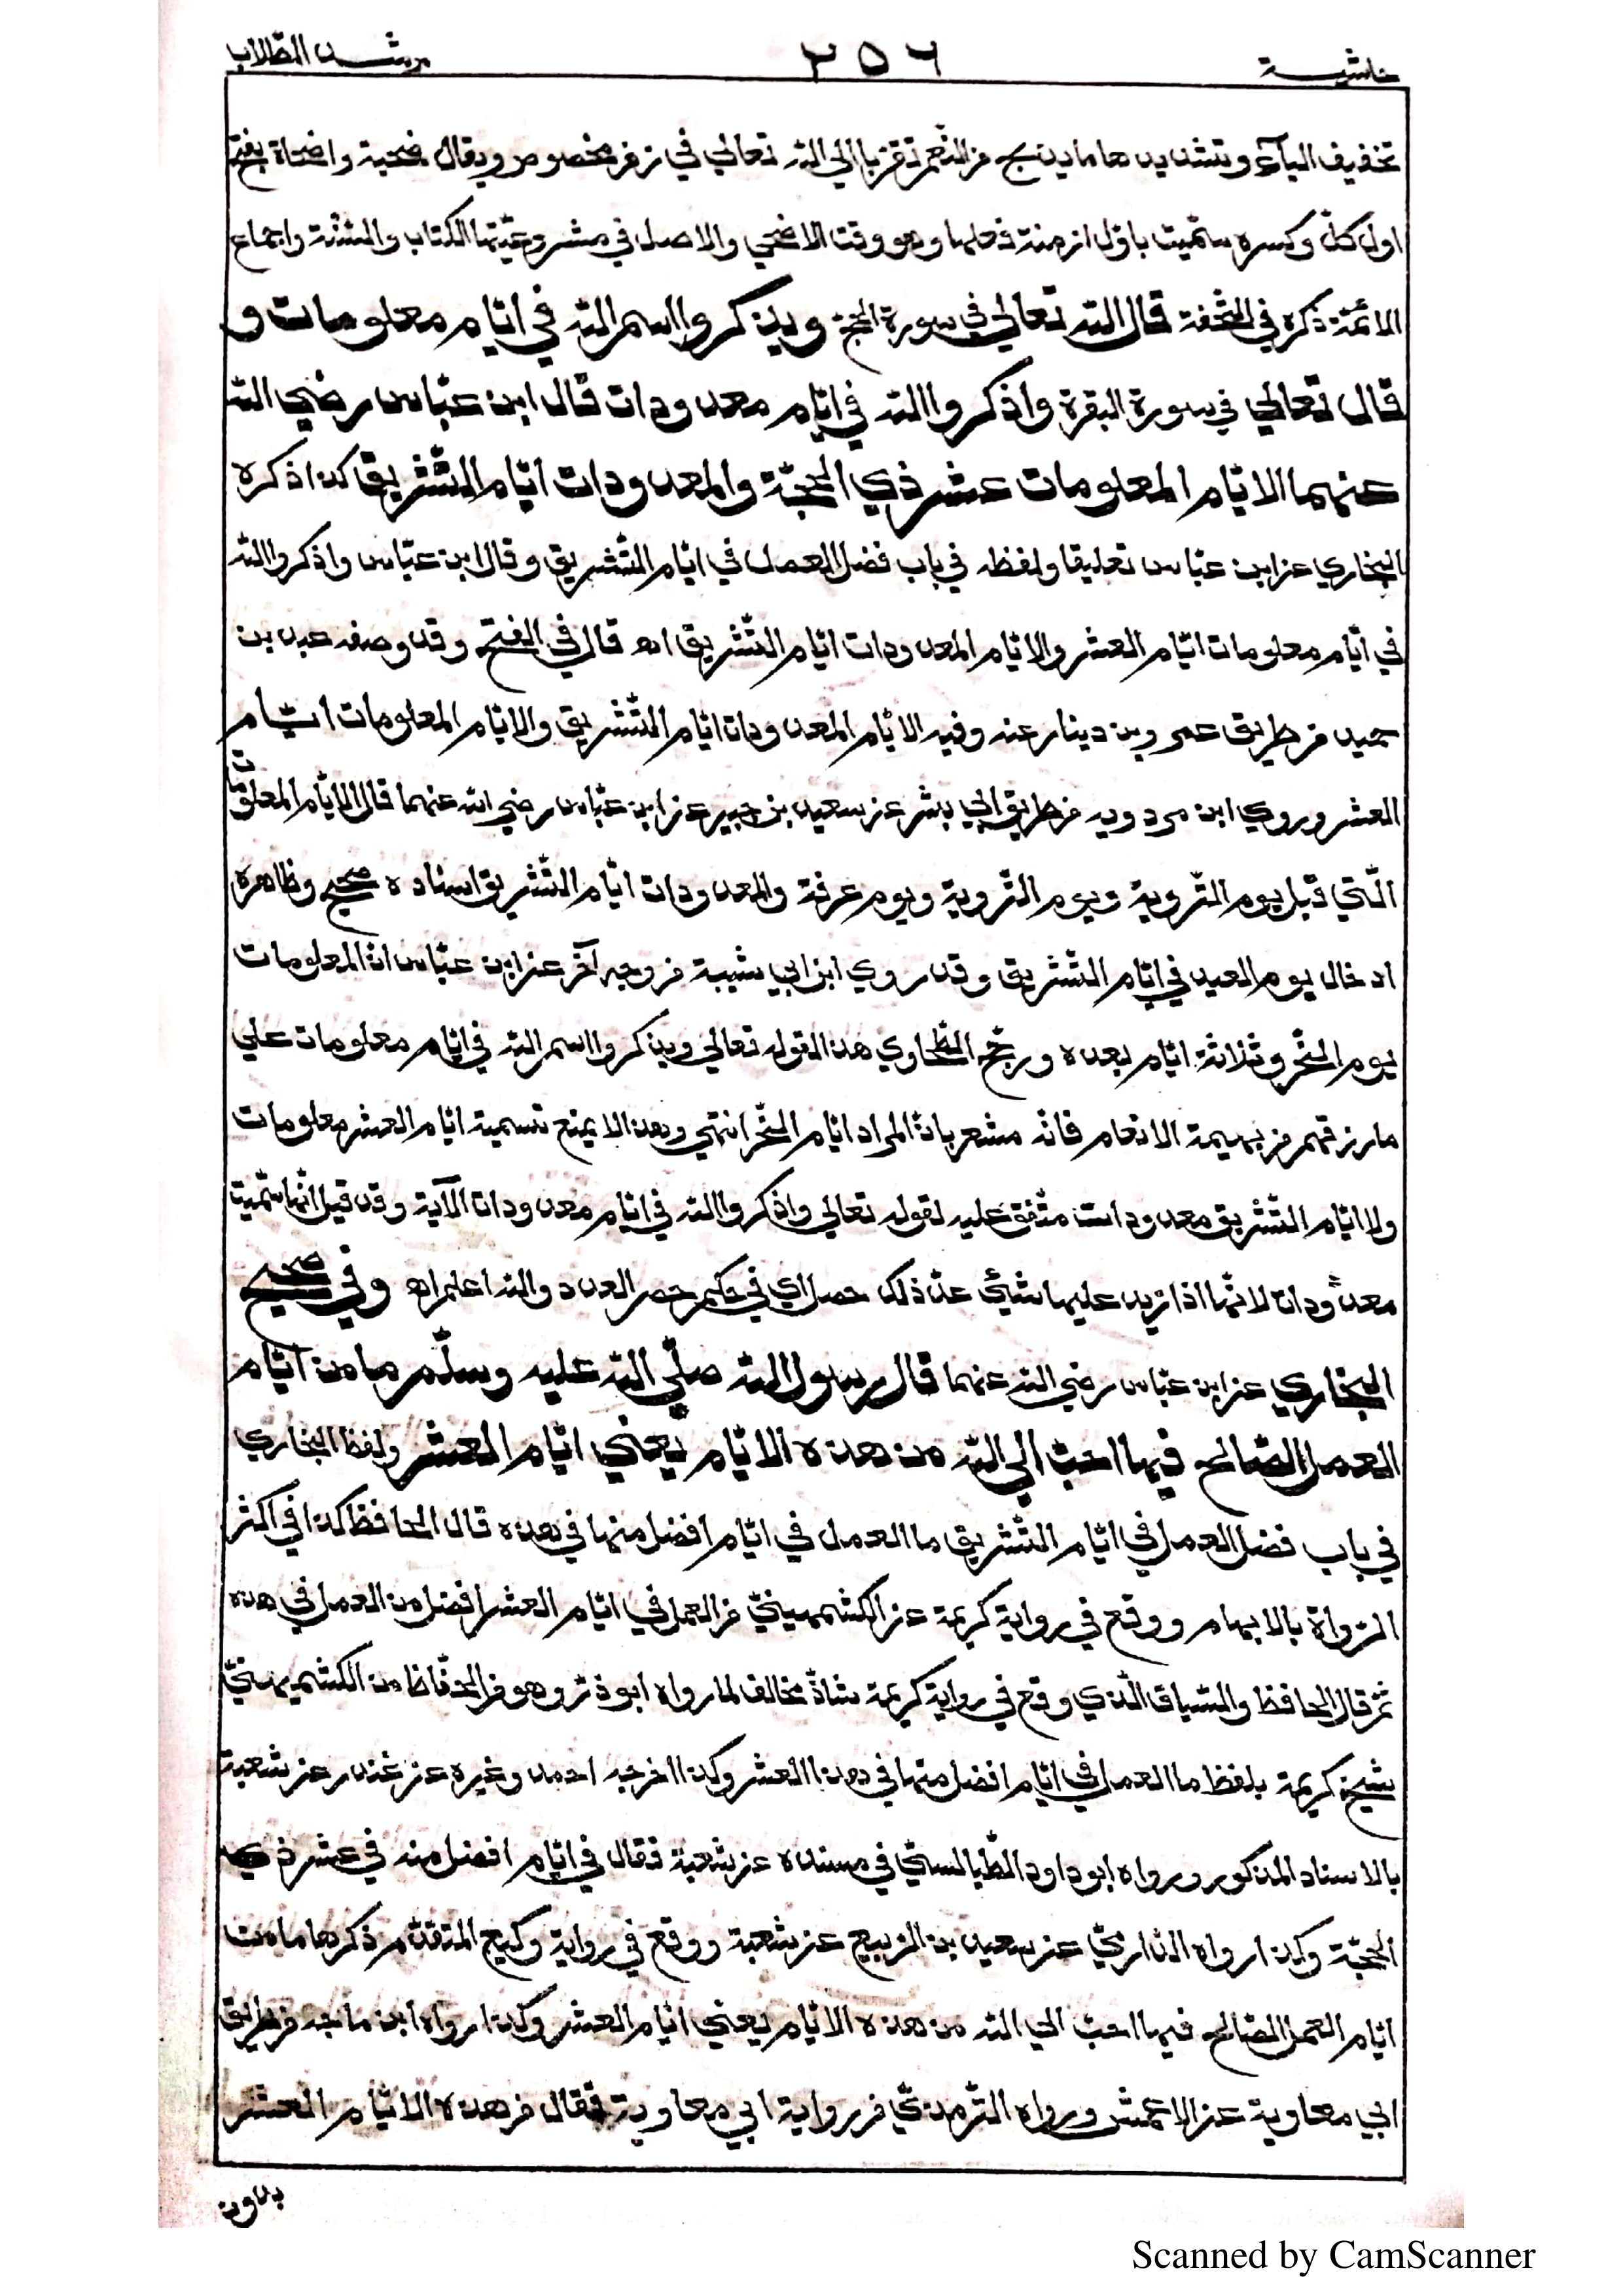 حاشية ٢٥٦ مرشد الطلاب
تخفيف اليآء وتشديدها ما يذبح من النعم تقربا الى الله تعالى في زمن مخصوص ويقال ضحية واضحاة بفتح
اول كل وكسره سميت باول ازمنة فعلها وهو وقت الاضحى والاصل في مشروعيتها الكتاب والسنة واجماع
الائمة ذكره في التحفة قال الله تعالى في سورة الحج ويذكروا اسم الله في ايام معلومات و
قال تعالى في سورة البقرة واذكروا الله في ايام معدودات قال ابن عباس رضي الله
عنهما الايام المعلومات عشر ذي الحجة والمعدودات ايام التشريق كذا ذكره
البخاري عن ابن عباس تعليقا ولفظه في باب فضل العمل في ايام التشريق وقال ابن عباس واذكروا الله
في ايام معلومات ايام العشر والايام المعدودات ايام التشريق اه قال في الفتح وقد وصفه عبد بن
حميد من طريق عمرو بن دينار عنه وفيه الايام المعدودات ايام التشريق والايام المعلومات ايام
العشر وروى ابن مردويه من طريق ابي بشر عن سعيد بن جبير عن ابن عباس رضي الله عنهما قال الايام المعلومات
التي قبل يوم التروية ويوم التروية ويوم عرفة والمعدودات ايام التشريق اسناده صحيح وظاهره
ادخال يوم العيد في ايام التشريق وقد روى ابن ابي شيبة من وجه آخر عن ابن عباس ان المعلومات
يوم النحر وثلاثة ايام بعده ورجح الطحاوي هذا لقوله تعالى ويذكروا اسم الله في ايام معلومات على
ما رزقهم من بهيمة الانعام فانه مشعر بان المراد ايام النحر انتهى وهذا لا يمنع تسمية ايام العشر معلومات
ولا ايام التشريق معدودات متفق عليه لقوله تعالى واذكروا الله في ايام معدودات الآية وقد قيل انها سميت
معدودات لانها اذا زيد عليها شيئ عد ذلك حصرا اي في حكم حصر العدد والله اعلم اه وفي صحيح
البخاري عن ابن عباس رضي الله عنهما قال رسول الله صلى الله عليه وسلم ما من ايام
العمل الصالح فيها احب الى الله من هذه الايام يعني ايام العشر ولفظ البخاري
في باب فضل العمل في ايام التشريق ما العمل في ايام افضل منها في هذه قال الحافظ كذا في اكثر
الرواة بالابهام ووقع في رواية كريمة عن الكشميهني ما العمل في ايام العشر افضل من العمل في هذه
ثم قال الحافظ والسياق الذي وقع في رواية كريمة شاذ مخالف لما رواه ابو ذر وهو من الحفاظ من الكشميهني
شيخ كريمة بلفظ ما العمل في ايام افضل منها في هذا العشر وكذا اخرجه احمد وغيره عن غندر عن شعبة
بالاسناد المذكور ورواه ابو داود الطيالسي في مسنده عن شعبة فقال في ايام افضل منه في عشر ذي
الحجة وكذا رواه الدارمي عن سعيد بن الربيع عن شعبة ووقع في رواية وكيع المتقدم ذكرها ما من
ايام العمل الصالح فيها احب الى الله من هذه الايام يعني ايام العشر وكذا رواه ابن ماجه من طريق
ابي معاوية عن الاعمش ورواه الترمذي من رواية ابي معاوية فقال من هذه الايام العشر
بدون
Scanned by CamScanner